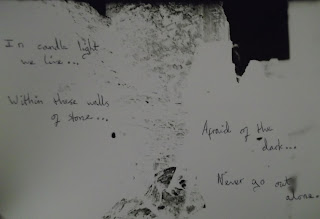 In candle light
we live...
Within these walls
of stone...
Afraid of the
dark...
Never go out
alone.